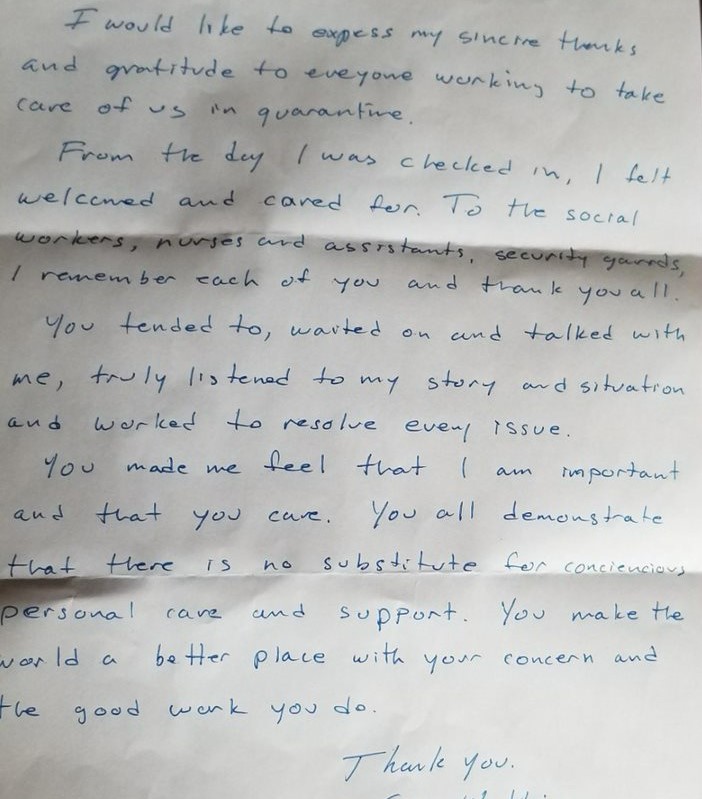 I would like to expess my sincere thanks
and gratitude to eveyone working to take
care of us in quarantine.
From the day I was checked in, I felt
welcomed and cared for. To the social
workers, nurses and assistants, security gaurds,
I remember each of you and thank you all.
You tended to, waited on and talked with
me, truly listened to my story and situation
and worked to resolve every issue.
You made me feel that I am important
and that you care. You all demonstrate
that there is no substitute for conciencious
personal care and support. You make the
world a better place with your concern and
the good work you do.
Thank you.